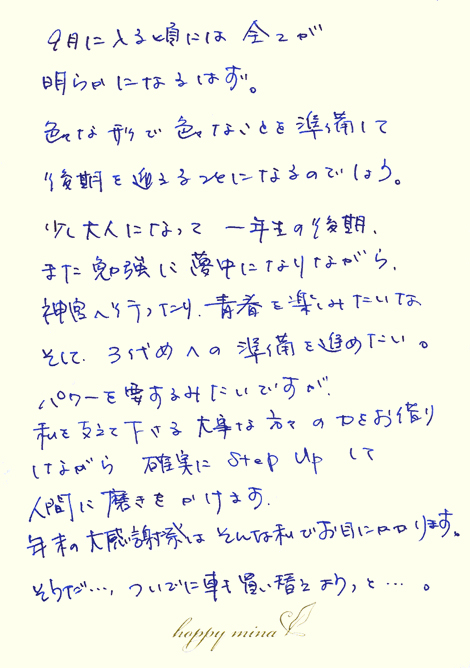 9月に入る頃には 全てが
明らかになるはず。
色々な形で色々なことを準備して
後期を迎えることになるのでしょう。
少し大人になって 一年生の後期、
また勉強に夢中になりながら、
神宮へ行ったり、青春を楽しみたいな
そして、3代めへの準備を進めたい。
パワーを要するみたいですが、
私を支えて下さる大事な方々の力をお借り
しながら 確実に Step Up して
人間に磨きをかけます。
年末の大感謝祭はそんな私でお目にかかります。
そうだ…、ついでに車も買い替えようっと…。
happy mina